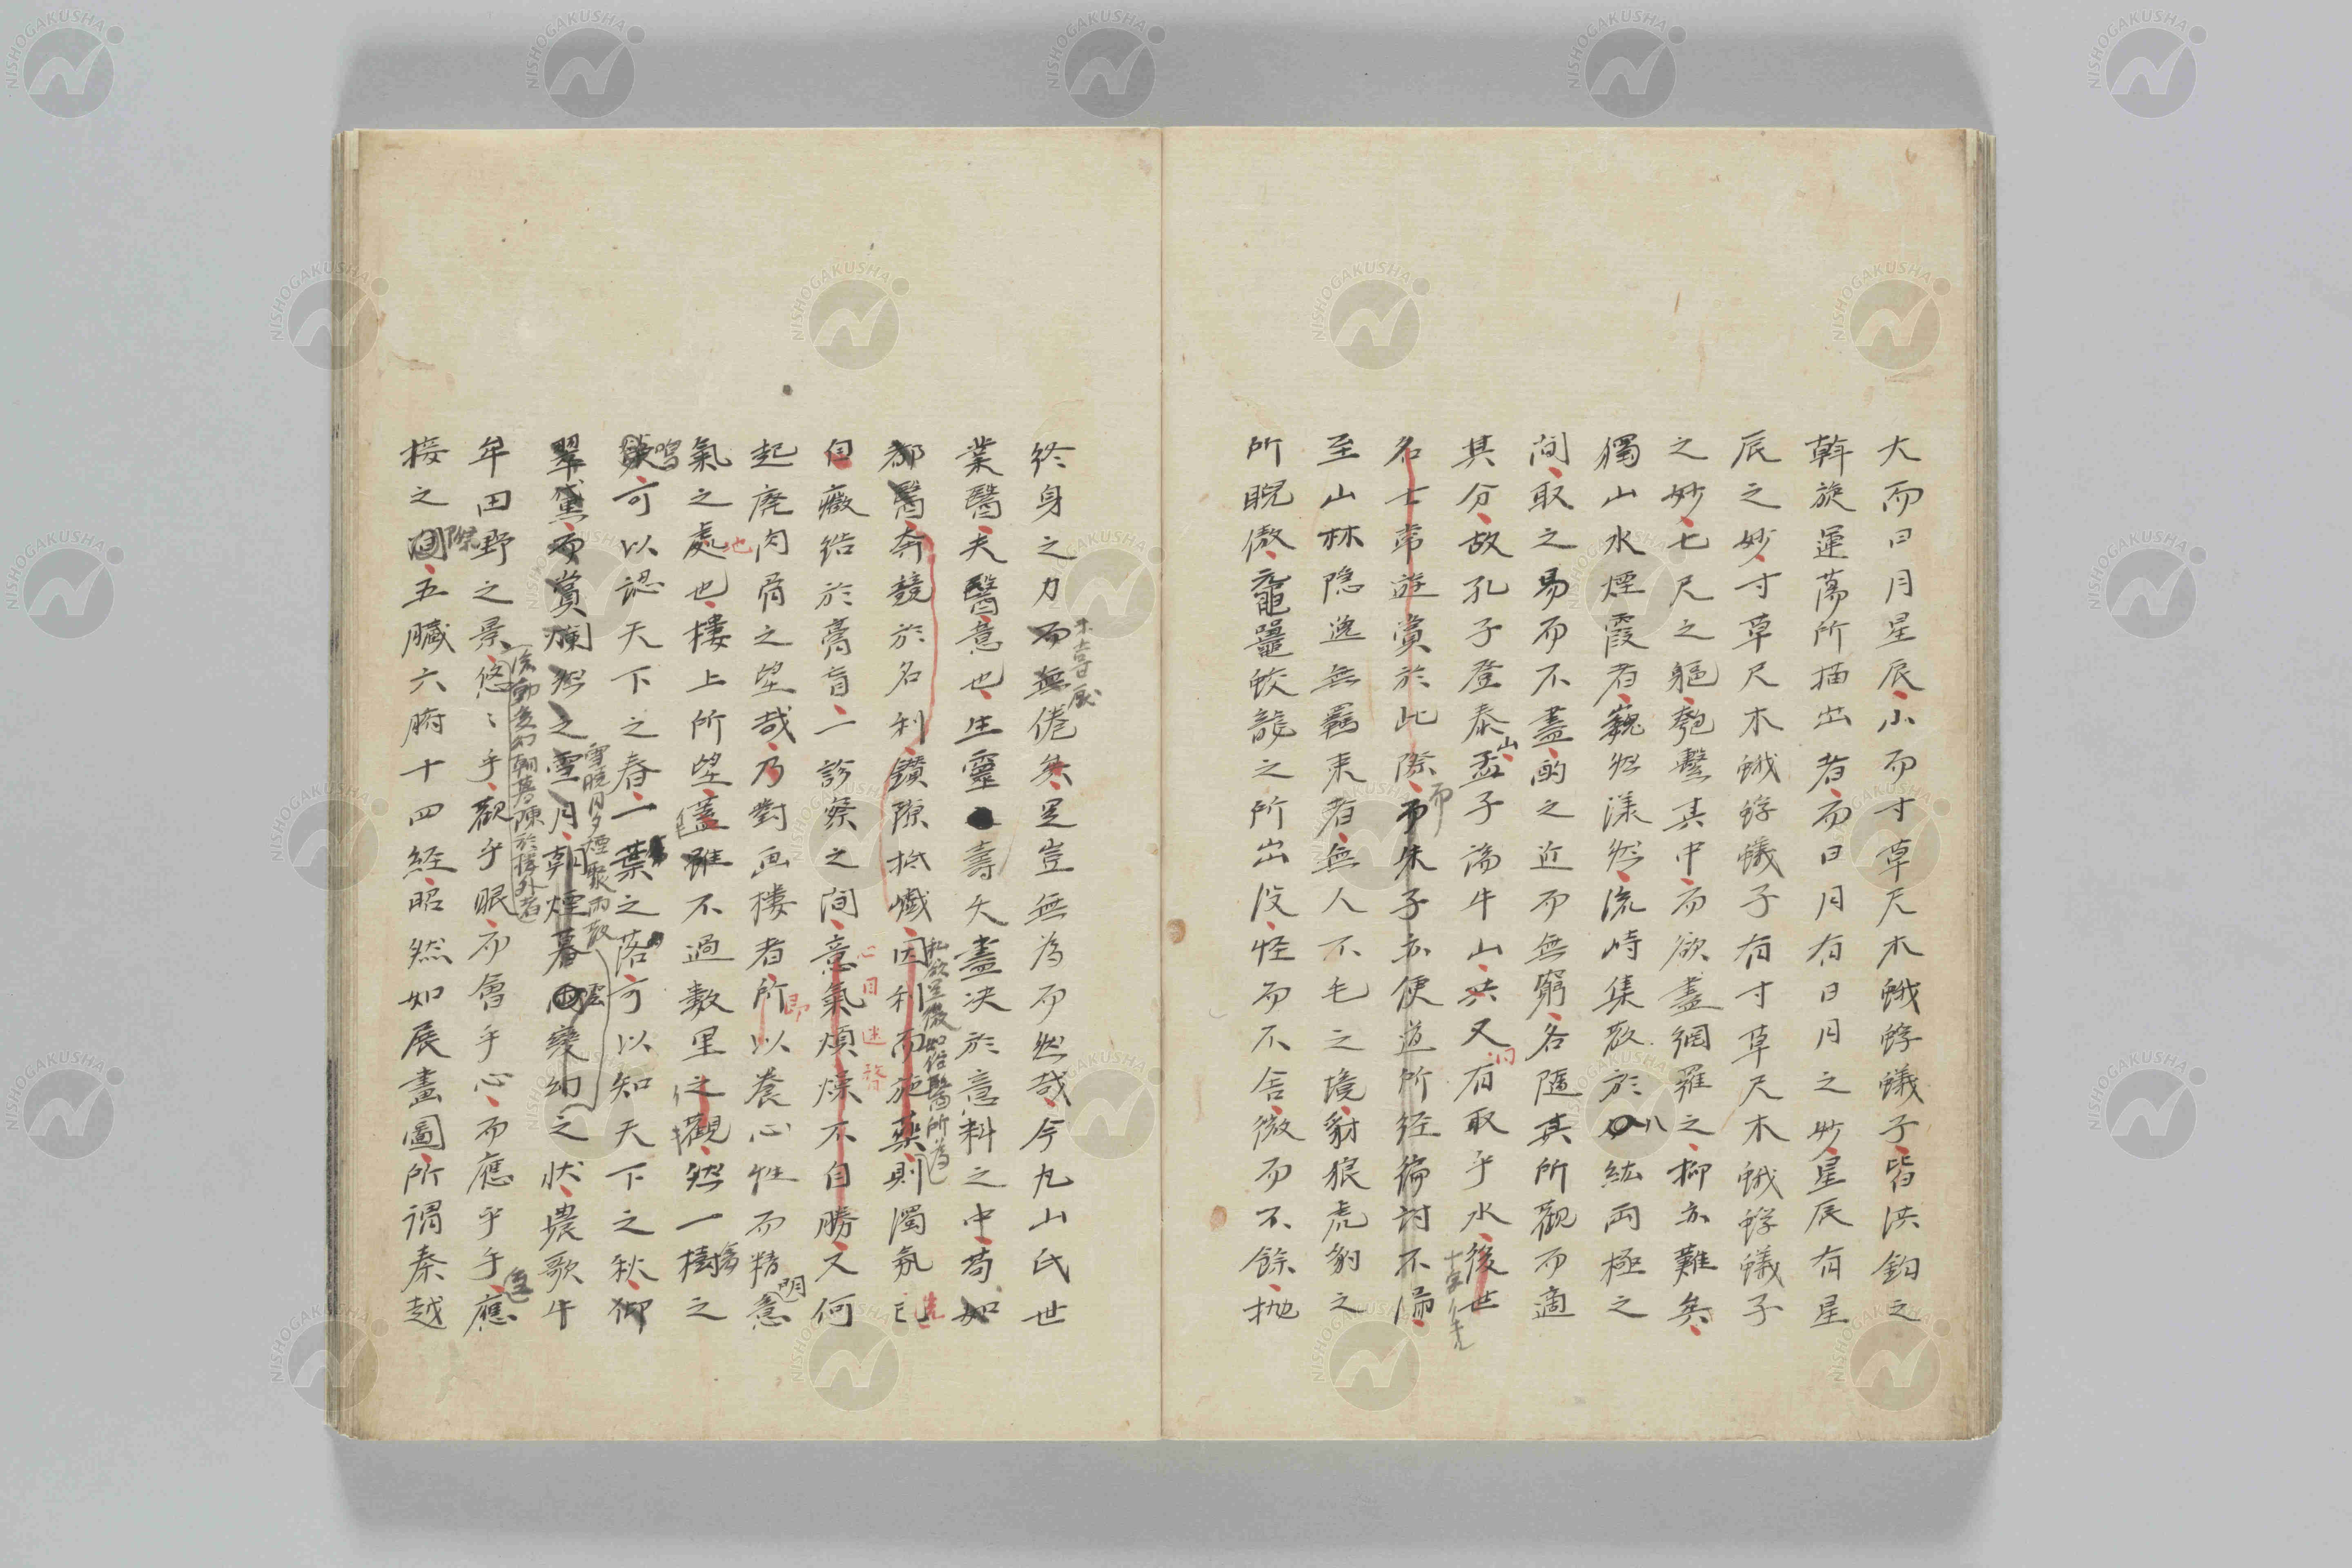 大而日月星辰小而寸草尺木蛾蜉蟻子皆洪鈞之
斡旋運蕩所描出者而日月有日月之妙星辰有星
辰之妙寸草尺木蛾蜉蟻子有寸草尺木蛾蜉蟻子
之妙七尺之軀匏繫其中而欲盡網羅之抑亦難矣
獨山水煙霞者巍然漾然流峙集散於八紘両極之
間取之易而不盡酌之近而無窮各隨其所観而適
其分故孔子登泰山孟子論牛山共又有取乎水後世
名士常遊賞於此際而朱子亦便道所経徧討不漏
至山林隠逸無羈束者無人不毛之境豺狼虎豹之
所睨傲黿鼉蛟龍之所出没怪而不舎微而不餘抛
終身之力而無倦矣是豈無為而然哉今丸山氏世
業醫夫醫意也生靈壽夭盡决於意料之中苟如
都醫奔競於名利鑽隙抵巇因利而施藥則濁気已
自癥結於膏肓一診察之間意氣煩燥不自勝又何
起廃肉骨之望哉乃對画樓者所以養心性而精意
氣之處也樓上所望蓋雖不過數里之觀然一樹之
可以認天下之春一葉之落可以知天下之秋仰
翠黛而賞爛然之雪月朝煙暮変幻之状農歌牛
牟田野之景悠〻乎観乎眼而會乎心而應乎手應
接之際五臓六腑十四経昭然如展畫圖所謂秦越
雪暁月夕煙聚雨散
心目迷瞀